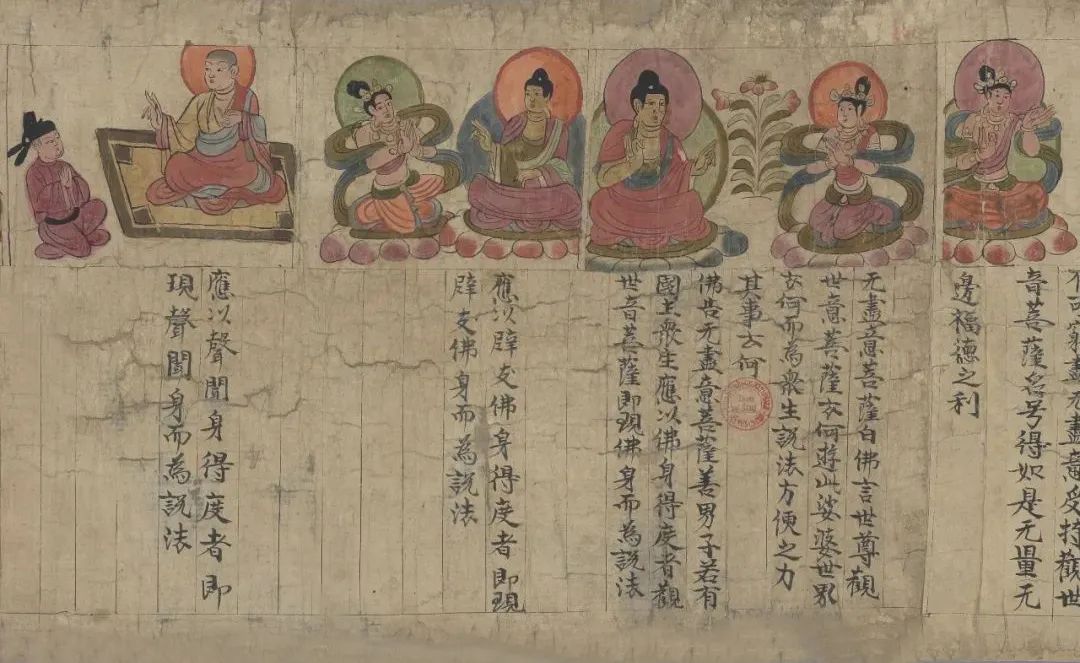 不可窮盡无盡意受持觀世
音菩薩名号得如是无量无
邊福德之利
无盡意菩薩白佛言世尊觀
世音菩薩云何遊此娑婆世界
云何而為衆生說法方便之力
其事云何
佛告无盡意菩薩善男子若有
國土衆生應以佛身得度者觀
世音菩薩即現佛身而為說法
應以辟支佛身得度者即現
辟支佛身而為說法
應以聲聞身得度者即
現聲聞身而為說法